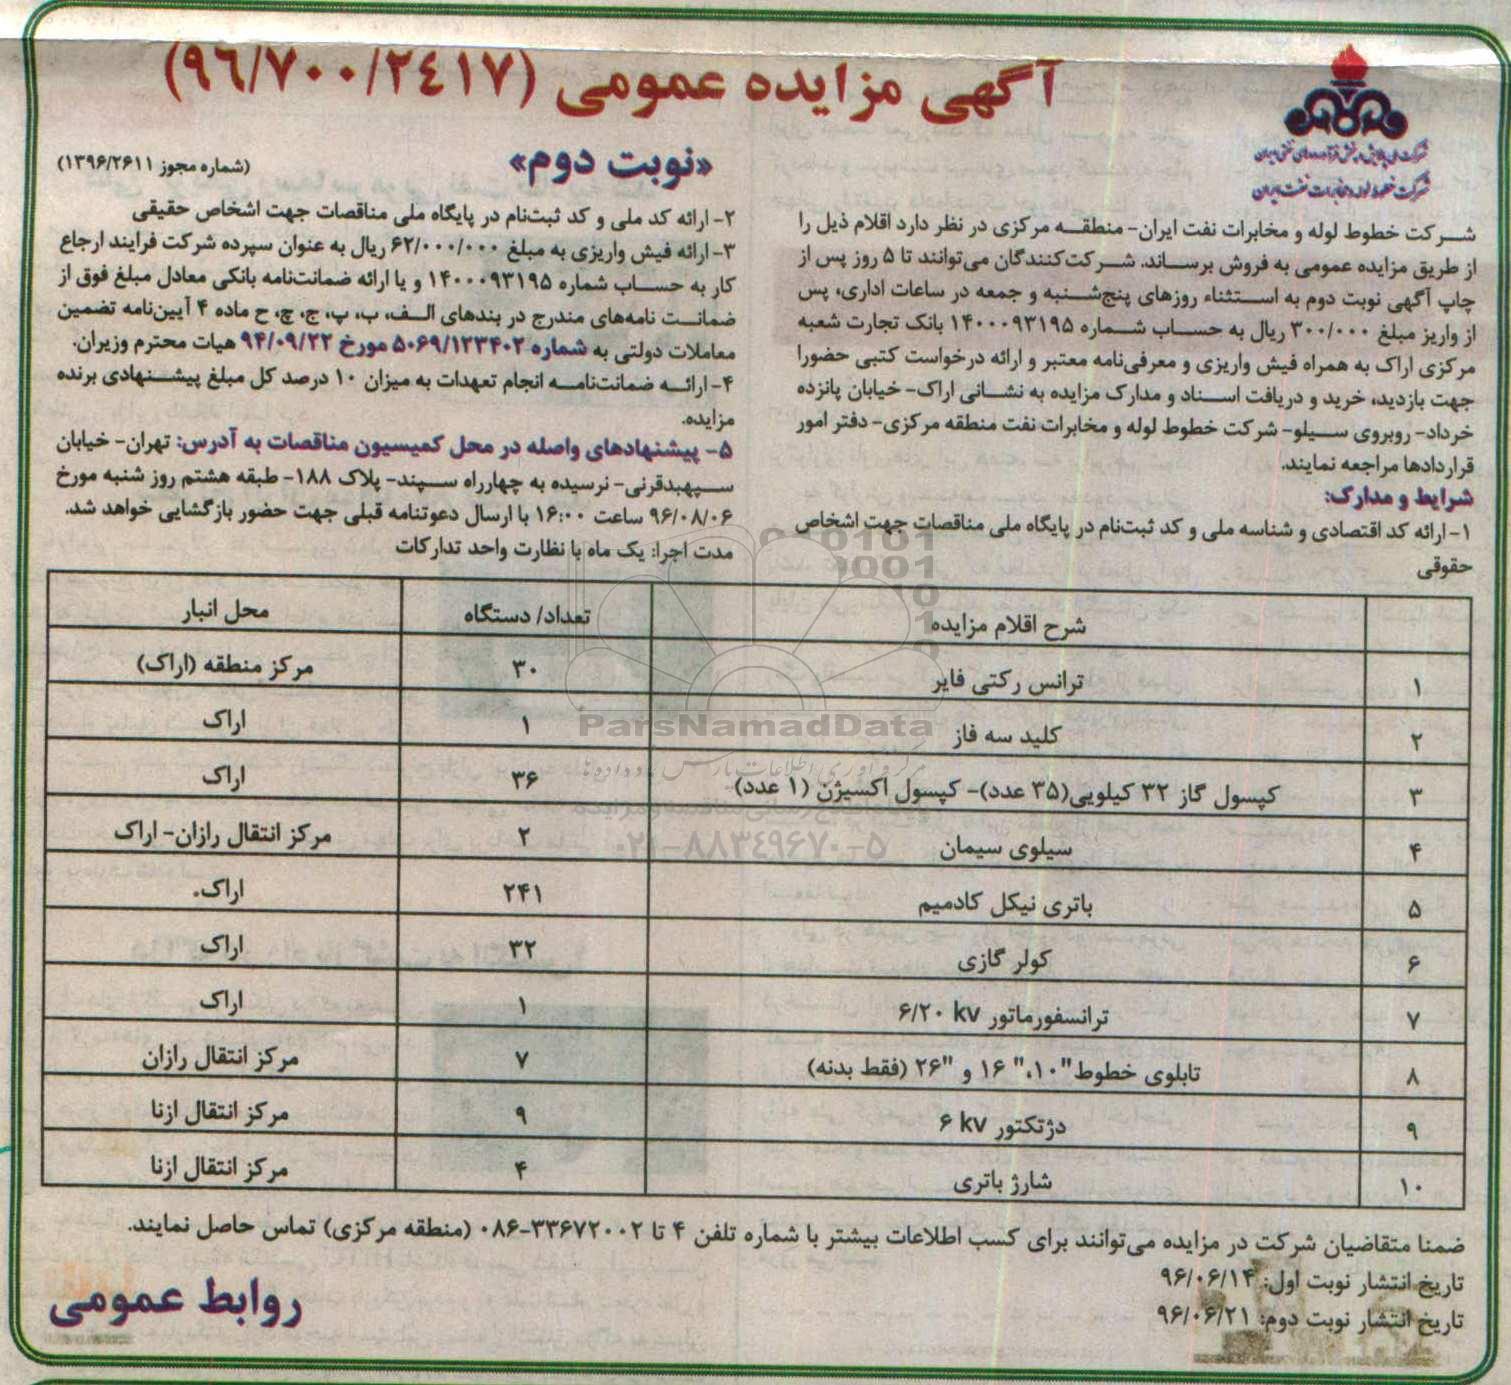 آگهی مزایده عمومی (۹۶/۷۰۰/۲٤۱۷)
«نوبت دوم»
(شماره مجوز ۱۳۹۶/۲۶۱۱)
شرکت ملی پالایش و پخش فرآورده‌های نفتی ایران
شرکت خطوط لوله و مخابرات نفت ایران
شــرکت خطوط لوله و مخابرات نفت ایران- منطقــه مرکزی در نظر دارد اقلام ذیل را
از طریق مزایده عمومی به فروش برساند. شــرکت‌کنندگان می‌توانند تا ۵ روز پس از
چاپ آگهی نوبت دوم به اســتثناء روزهای پنج‌شــنبه و جمعه در ساعات اداری، پس
از واریز مبلغ ۳۰۰/۰۰۰ ریال به حساب شــماره ۱۴۰۰۰۹۳۱۹۵ بانک تجارت شعبه
مرکزی اراک به همراه فیش واریزی و معرفی‌نامه معتبر و ارائه درخواست کتبی حضورا
جهت بازدید، خرید و دریافت اســناد و مدارک مزایده به نشــانی اراک- خیابان پانزده
خرداد- روبروی ســیلو- شرکت خطوط لوله و مخابرات نفت منطقه مرکزی- دفتر امور
قراردادها مراجعه نمایند.
شرایط و مدارک:
۱- ارائه کد اقتصادی و شناسه ملی و کد ثبت‌نام در پایگاه ملی مناقصات جهت اشخاص
حقوقی
۲- ارائه کد ملی و کد ثبت‌نام در پایگاه ملی مناقصات جهت اشخاص حقیقی
۳- ارائه فیش واریزی به مبلغ ۶۲/۰۰۰/۰۰۰ ریال به عنوان سپرده شرکت فرایند ارجاع
کار به حســاب شماره ۱۴۰۰۰۹۳۱۹۵ و یا ارائه ضمانت‌نامه بانکی معادل مبلغ فوق از
ضمانــت نامه‌های مندرج در بندهای الــف، ب، پ، ج، چ، ح ماده ۴ آیین‌نامه تضمین
معاملات دولتی به شماره ۵۰۶۹/۱۲۳۴۰۲ مورخ ۹۴/۰۹/۲۲ هیات محترم وزیران.
۴- ارائــه ضمانت‌نامــه انجام تعهدات به میزان ۱۰ درصد کل مبلغ پیشــنهادی برنده
مزایده.
۵- پیشنهادهای واصله در محل کمیسیون مناقصات به آدرس: تهران- خیابان
ســپهبدقرنی- نرسیده به چهارراه ســپند- پلاک ۱۸۸- طبقه هشتم روز شنبه مورخ
۹۶/۰۸/۰۶ ساعت ۱۶:۰۰ با ارسال دعوتنامه قبلی جهت حضور بازگشایی خواهد شد.
مدت اجرا: یک ماه با نظارت واحد تدارکات
شرح اقلام مزایده تعداد/ دستگاه محل انبار
۱ ترانس رکتی فایر ۳۰ مرکز منطقه (اراک)
۲ کلید سه فاز ۱ اراک
۳ کپسول گاز ۳۲ کیلویی(۳۵ عدد)- کپسول اکسیژن (۱ عدد) ۳۶ اراک
۴ سیلوی سیمان ۲ مرکز انتقال رازان- اراک
۵ باتری نیکل کادمیم ۲۴۱ اراک.
۶ کولر گازی ۳۲ اراک
۷ ترانسفورماتور ۶/۲۰ kv ۱ اراک
۸ تابلوی خطوط "۱۰، "۱۶ و "۲۶ (فقط بدنه) ۷ مرکز انتقال رازان
۹ دژنکتور ۶ kv ۹ مرکز انتقال ازنا
۱۰ شارژ باتری ۴ مرکز انتقال ازنا
ضمنا متقاضیان شرکت در مزایده می‌توانند برای کسب اطلاعات بیشتر با شماره تلفن ۴ تا ۳۳۶۷۲۰۰۲-۰۸۶ (منطقه مرکزی) تماس حاصل نمایند.
تاریخ انتشار نوبت اول: ۹۶/۰۶/۱۴
تاریخ انتشار نوبت دوم: ۹۶/۰۶/۲۱
روابط عمومی
ParsNamadData
۰۲۱-۸۸۳۴۹۶۷۰-۵